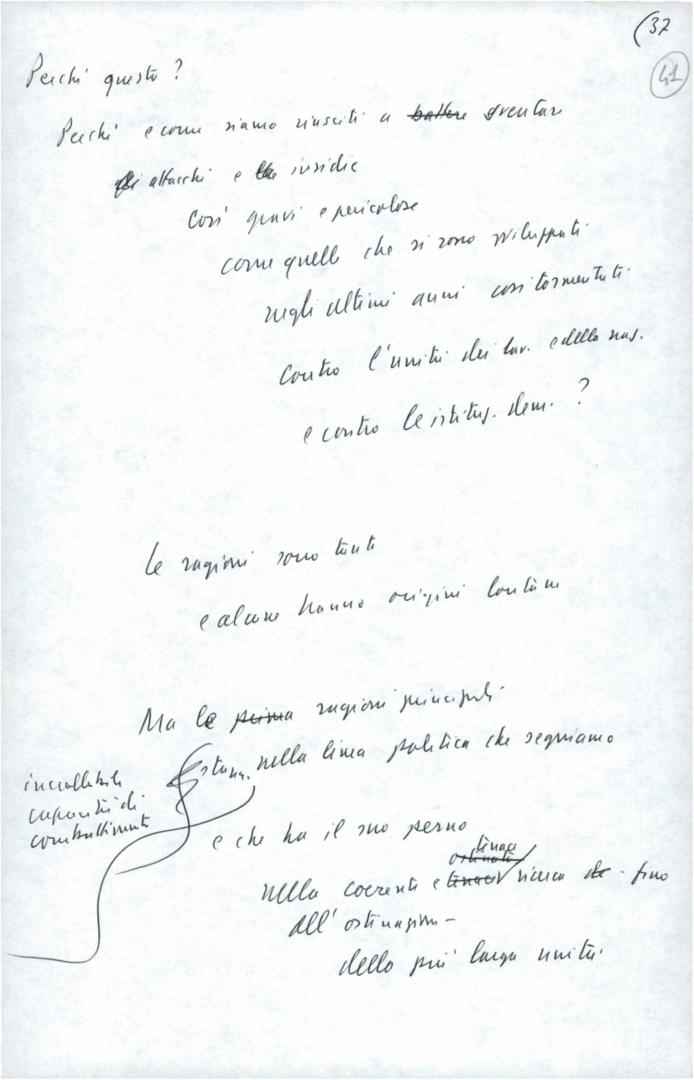 (37
41
Perché questo?
Perché e come siamo riusciti a battere sventare
gli attacchi e le insidie
così gravi e pericolose
come quelle che si sono sviluppati
negli ultimi anni così tormentati
contro l'unità dei lav. e della naz.
e contro le istituz. dem.?
Le ragioni sono tante
e alcune hanno origini lontane
Ma le prima ragioni principali
stanno nella linea politica che seguiamo
incrollabile
capacità di
combattimento
e che ha il suo perno
tenace
ostinata
nella coerente e tenace ricerca de - fino
all'ostinazione -
della più larga unità.